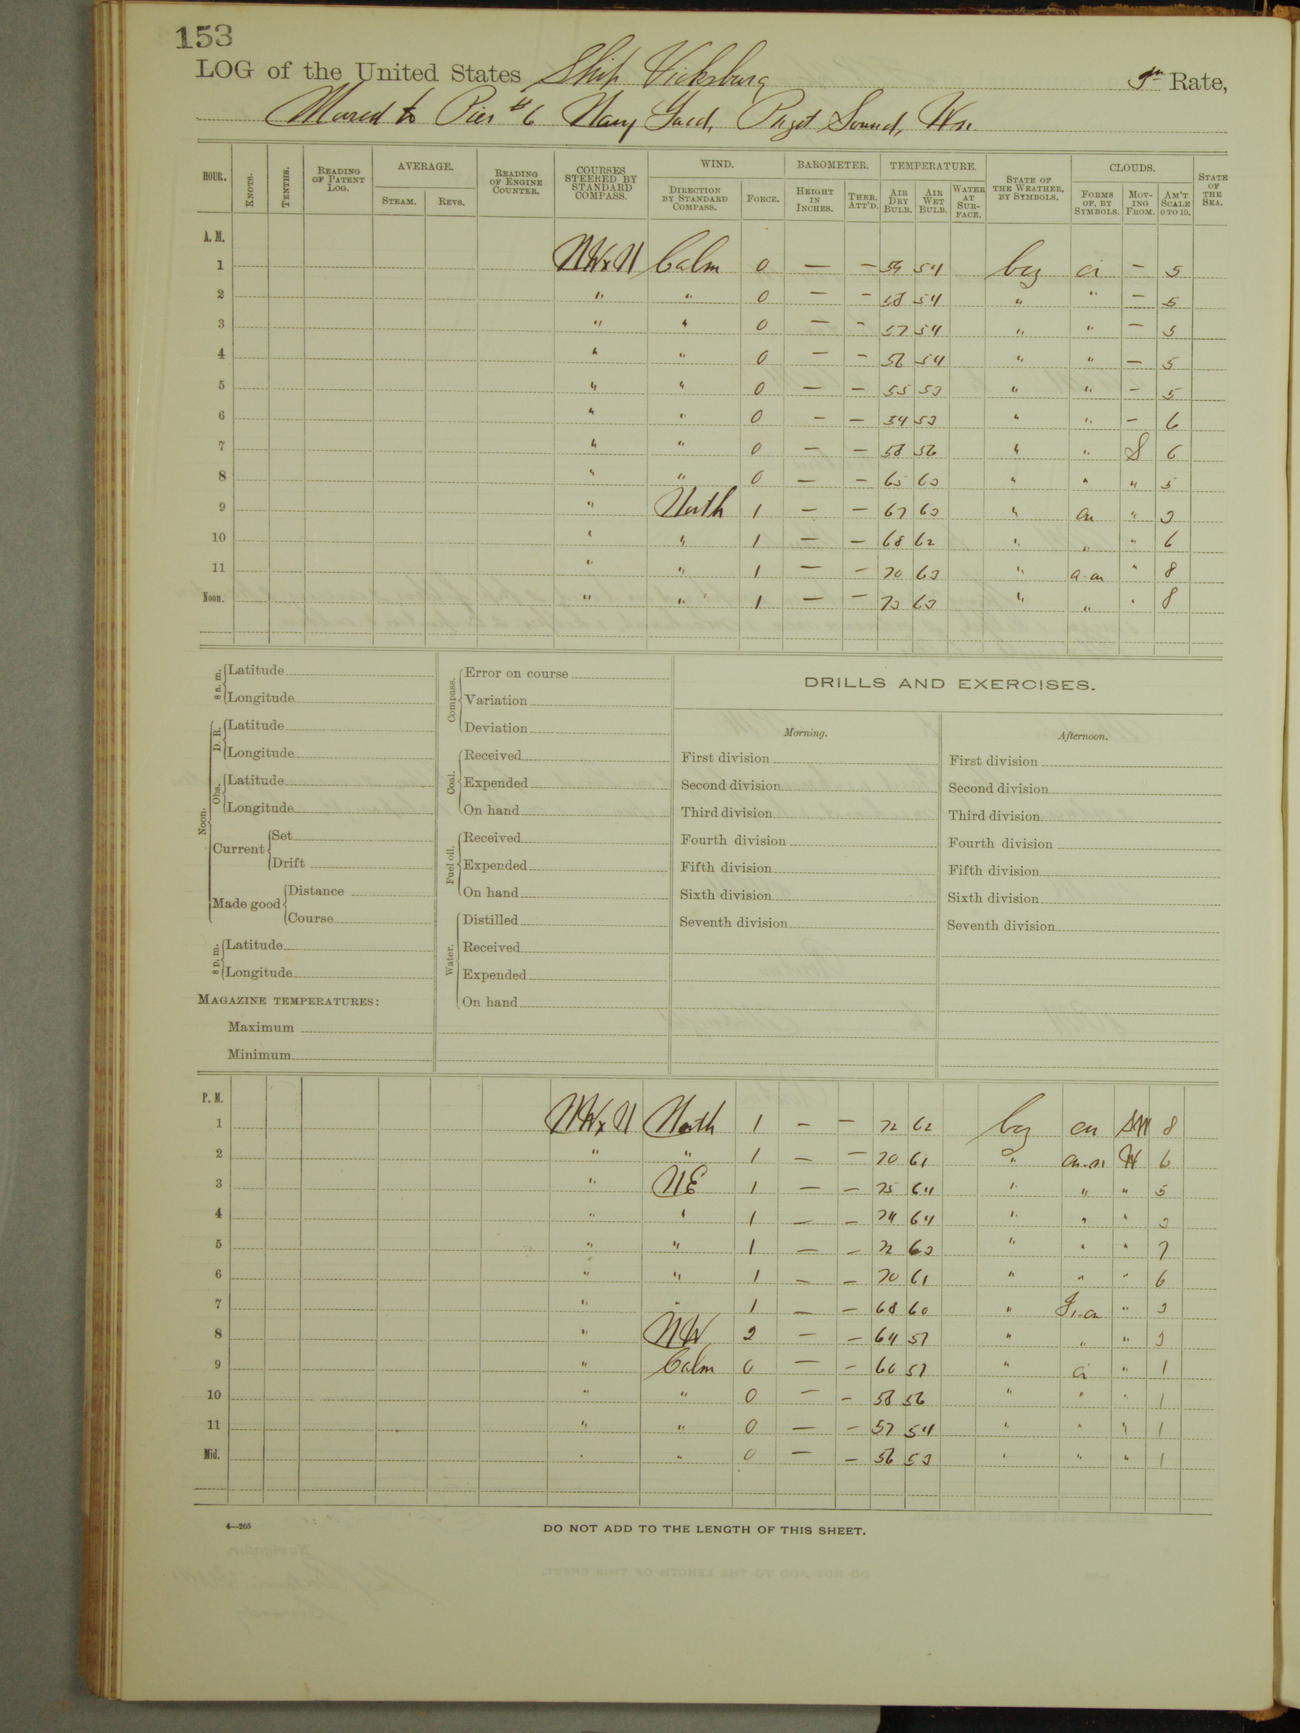 153
LOG of the United States Ship Vicksburg Rate,
Moored to Pier #6 Navy Yard, Puget Sound, Wn.
HOUR. KNOTS. TENTHS. READING OF PATENT LOG. AVERAGE. STEAM. REVS. READING OF ENGINE COUNTER. COURSES STEERED BY STANDARD COMPASS. WIND. DIRECTION BY STANDARD COMPASS. FORCE. BAROMETER. HEIGHT IN INCHES. THER. ATT'D. TEMPERATURE. AIR DRY BULB. AIR WET BULB. WATER AT SURFACE. STATE OF THE WEATHER, BY SYMBOLS. CLOUDS. FORMS OF, BY SYMBOLS. MOVING FROM. AM'T SCALE 0 TO 10. STATE OF THE SEA.
A. M.
1 NWxN Calm 0 — — 59 54 bcz ci — 5
2 " " 0 — — 58 54 " " — 5
3 " " 0 — — 57 54 " " — 5
4 " " 0 — — 56 54 " " — 5
5 " " 0 — — 55 53 " " — 5
6 " " 0 — — 54 53 " " — 6
7 " " 0 — — 58 56 " " S 6
8 " " 0 — — 65 63 " " " 5
9 " North 1 — — 67 63 " cu " 3
10 " " 1 — — 68 62 " " " 6
11 " " 1 — — 70 63 " " 8
Noon. " " 1 — — 73 63 " " " 8
8 a. m. Latitude
Longitude
Noon. D. R. Latitude
Longitude
Obs. Latitude
Longitude
Current Set
Drift
Made good Distance
Course
8 p. m. Latitude
Longitude
MAGAZINE TEMPERATURES:
Maximum
Minimum
Compass. Error on course
Variation
Deviation
Coal. Received
Expended
On hand
Fuel oil. Received
Expended
On hand
Water. Distilled
Received
Expended
On hand
DRILLS AND EXERCISES.
Morning.
First division
Second division
Third division
Fourth division
Fifth division
Sixth division
Seventh division
Afternoon.
First division
Second division
Third division
Fourth division
Fifth division
Sixth division
Seventh division
P. M.
1 NWxN North 1 — — 72 62 bcz cu SW 8
2 " " 1 — — 70 61 " cu-n W 6
3 " NE 1 — — 75 64 " " " 5
4 " " 1 — — 74 64 " " " 3
5 " " 1 — — 72 63 " " " 7
6 " " 1 — — 70 61 " " " 6
7 " " 1 — — 68 60 " " 3
8 " NW 2 — — 64 57 " " " 3
9 " Calm 0 — — 60 57 " ci " 1
10 " " 0 — — 58 56 " " " 1
11 " " 0 — — 57 54 " " " 1
Mid. " " 0 — — 56 53 " " " 1
4—265
DO NOT ADD TO THE LENGTH OF THIS SHEET.